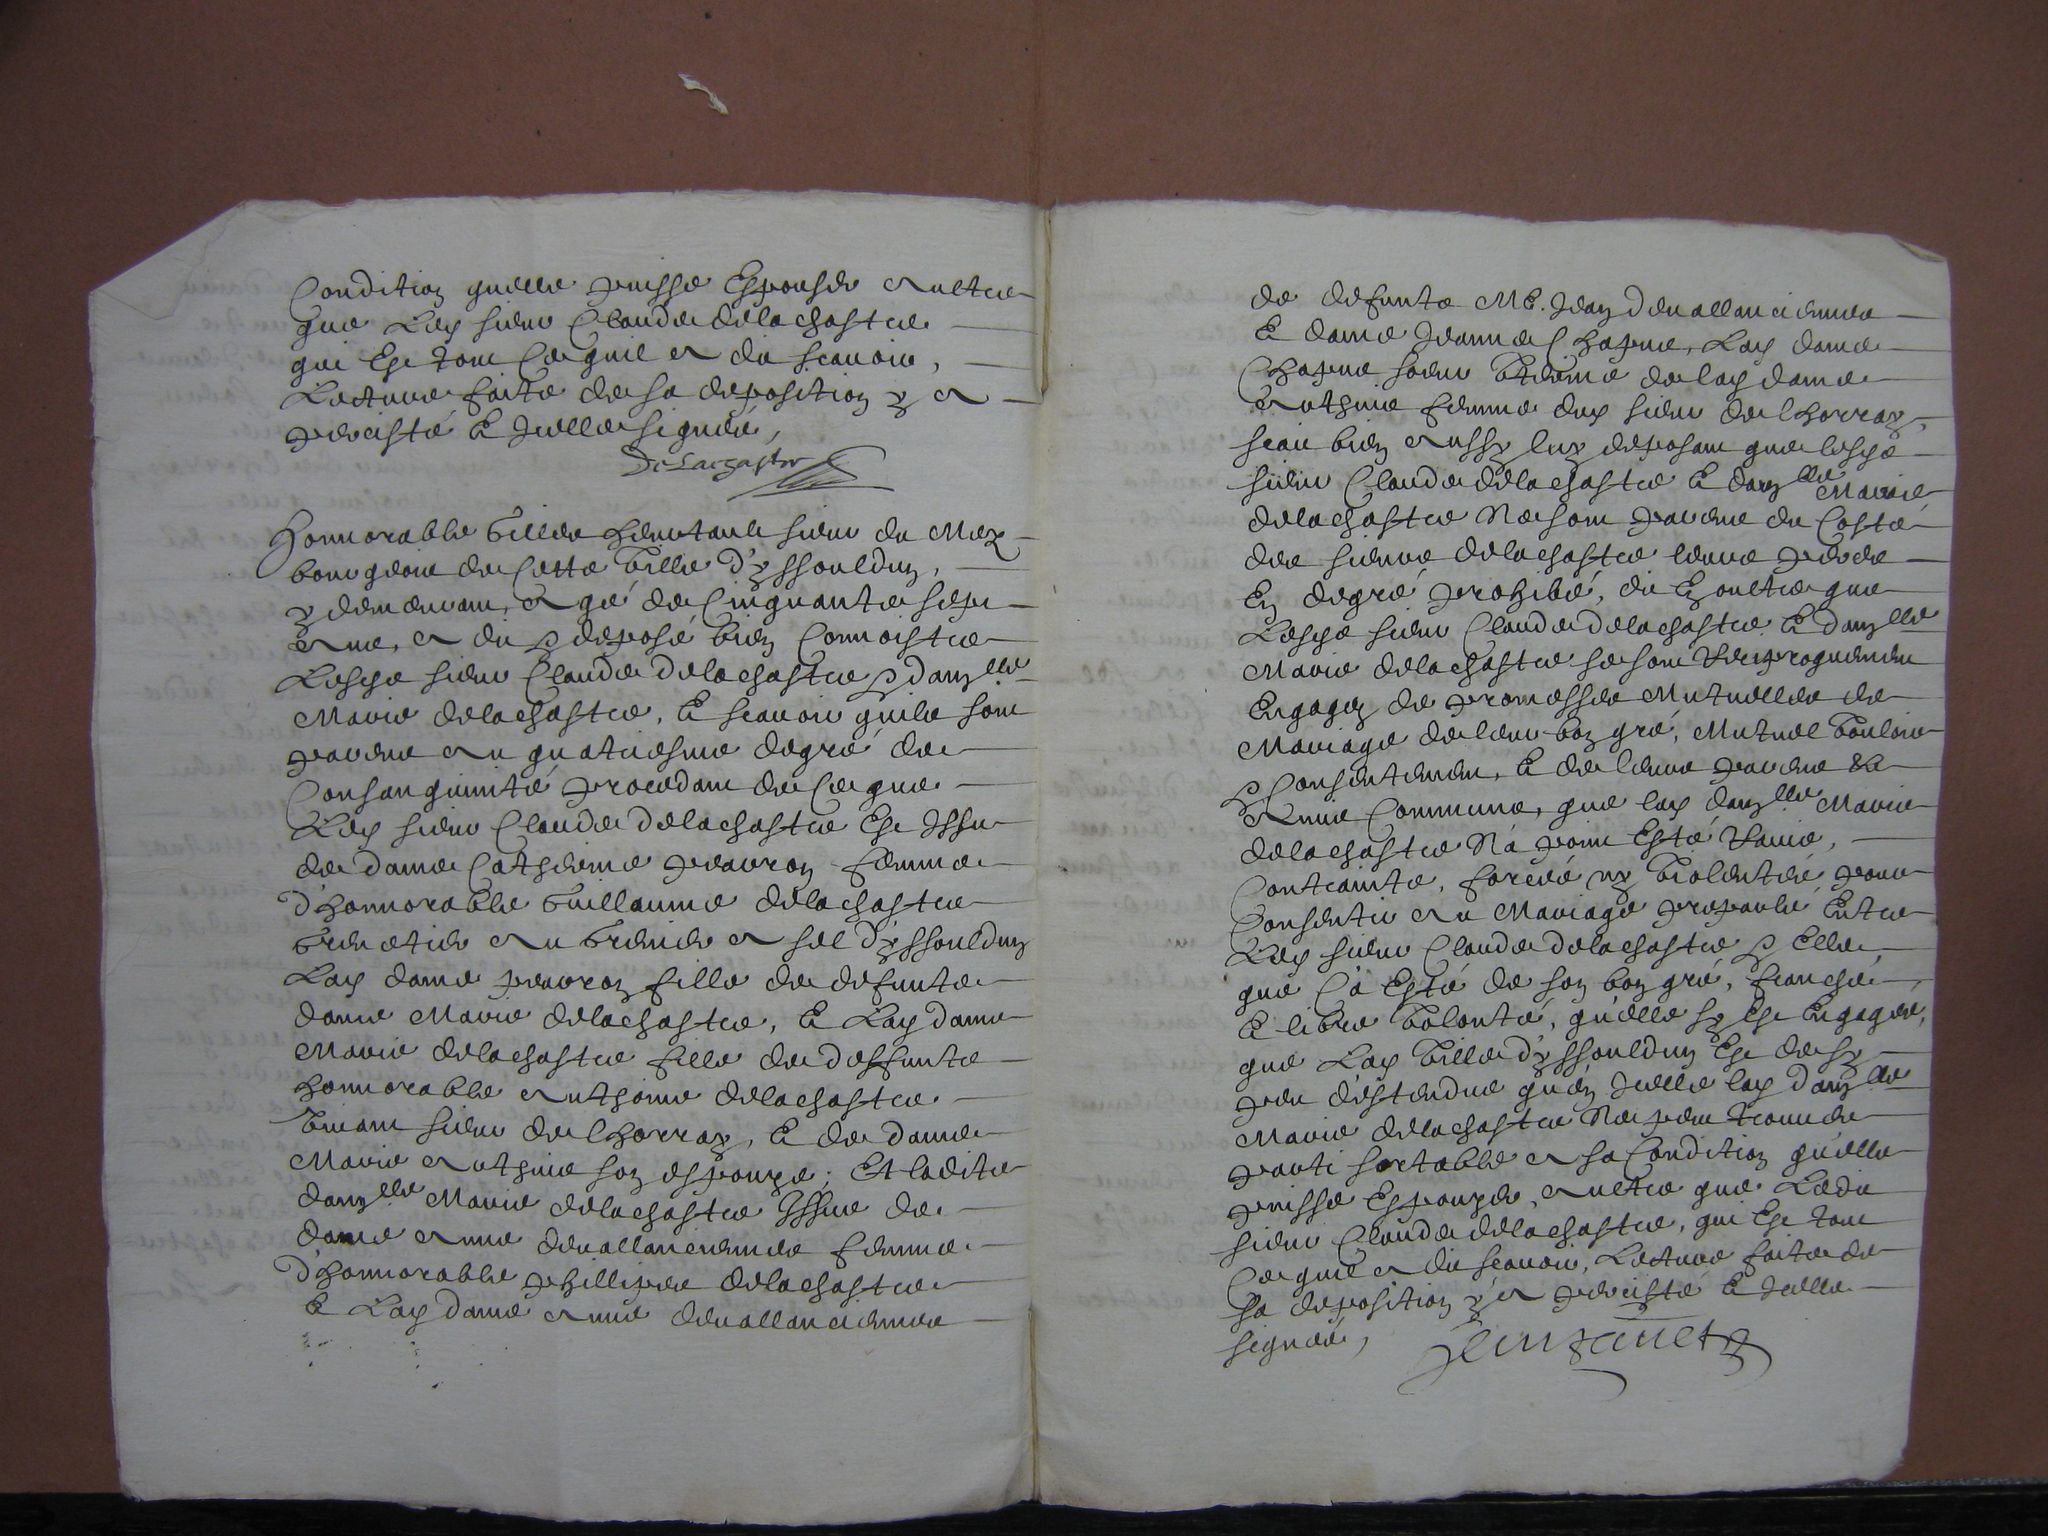 Condition quelle puisse Espouser autre
que Ledt sieur Claude delachastre
qui Est tout Ce quil a dit scauoir,
Lecture faite de sa deposition y a
percisté Et Icelle signée,
De Lacgastor
Honnorable Gilles heurtault sieur du Mez
bourgeois de Cette Ville d'yssouldun,
y demeurant, agé de Cinquante sept
ans, a dit & deposé bien Connoistre
Lesdts sieur Claude delachastre & damlle
Marie delachastre, Et scauoir quils sont
parens au quatriesme degré de
Consanguinité procedant de Ce que
Ledt sieur Claude delachastre Est Issu
de dame Catherine peauron femme
d'honnorable Guillaume delachastre
grenetier au grenier a sel d'yssouldun
Ladt dame peauron fille de defunte
dame Marie delachastre, Et Ladt dame
Marie delachastre fille de deffunte
honnorable anthoine delachastre
viuant sieur de lhorray, Et de dame
Marie sa espouze; Et ladite
damlle Marie delachastre Issue de
dame anne deuallanciennes femme
d'honnorable phillipes delachastre
Et Ladt dame anne deuallanciennes
de defunts Me. Jean deuallanciennes
Et dame Jeanne Chapue, Ladt dame
Chapue soeur Vterine de ladt dame
femme dudt sieur de lhorray,
scait bien aussy luy deposant que lesdts
sieur Claude delachastre Et damlle Marie
delachastre Ne sont parens du Costé
des sieurs delachastre leurs peres
En degré prohibé, dit En oultre que
Lesdts sieur Claude delachastre Et damlle
Marie delachastre se sont Reciproquement
Engagez de promesses Mutuelles de
Mariage de leur bon gré, Mutuel Vouloir
& Consentement, Et de leurs parens &
amis Communs, que ladt damlle Marie
delachastre Na point Esté Rauie,
Contrainte, forcée ny Violentée pour
Consentir au Mariage proparlé Entre
Ledt sieur Claude delachastre & Elle,
que Ca Esté de son bon gré, franche
Et libre Volonté, quelle sy Est Engagée,
que Ladt Ville d'yssouldun Est de sy
peu d'estendue qu'en Icelle ladt damlle
Marie delachastre Ne peut trouuer
parti sortable a sa Condition quelle
puisse Espouzer, autre que Ledit
sieur Claude delachastre, qui Est tout
Ce quil a dit scauoir, Lecture faite de
sa deposition y a percisté Et Icelle
signée,